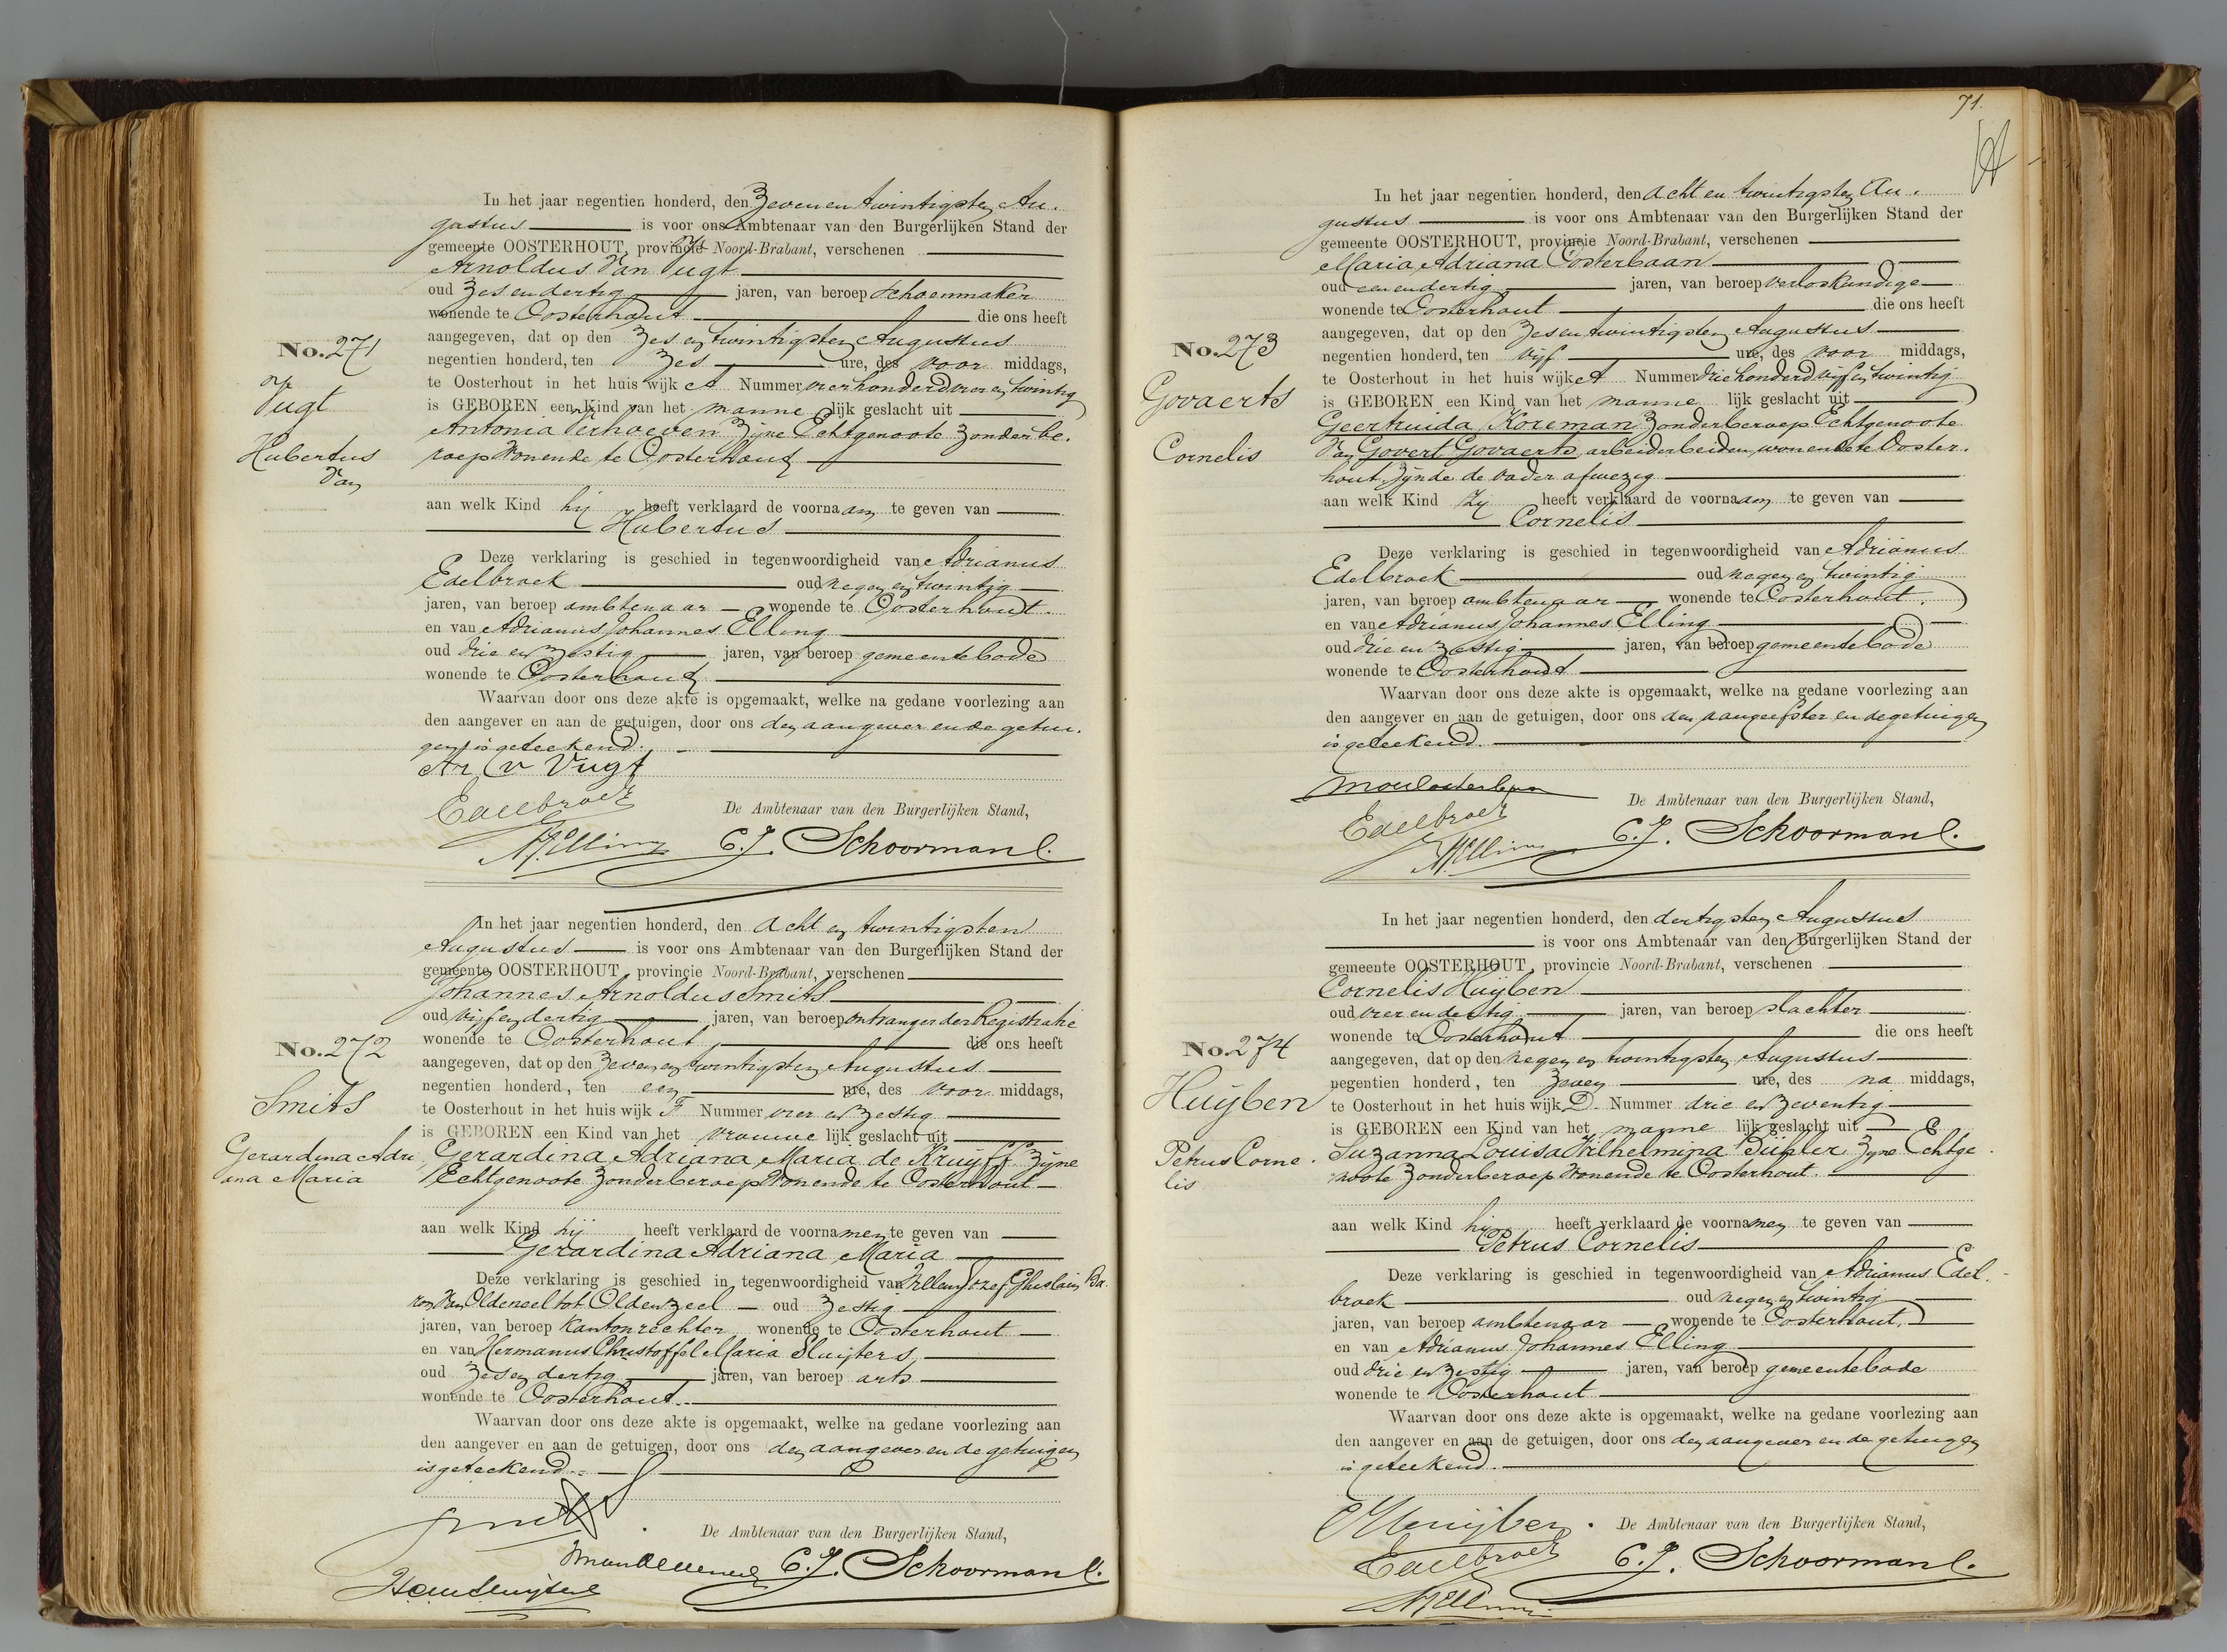 In het jaar negentien honderd, den Zevenentwintigsten Au-
gustus is voor ons Ambtenaar van den Burgerlijken Stand der
gemeente OOSTERHOUT, provincie Noord-Brabant, verschenen
Arnoldus Van Vugt
oud Zesendertig jaren, van beroep Schoenmaker
wonende te Oosterhout die ons heeft
No. 271
aangegeven, dat op den Zesentwintigsten Augustus
negentien honderd, ten Zes ure, des voor middags,
Vugt
te Oosterhout in het huis wijk A Nummer vierhonderdvierentwintig
is GEBOREN een Kind van het manne lijk geslacht uit
Antonia Verhoeven Zijne Echtgenoote Zonder be-
Hubertus
roep Wonende te Oosterhout
Van
aan welk Kind hij heeft verklaard de voornaam te geven van
Hubertus
Deze verklaring is geschied in tegenwoordigheid van Adrianus
Edelbroek oud negenentwintig
jaren, van beroep ambtenaar wonende te Oosterhout.
en van Adrianus Johannes Elling
oud drie en zestig jaren, van beroep gemeentebode
wonende te Oosterhout
Waarvan door ons deze akte is opgemaakt, welke na gedane voorlezing aan
den aangever en aan de getuigen, door ons den aangever en de getui-
gen is geteekend.
Ar v Vugt
Edelbroek
De Ambtenaar van den Burgerlijken Stand,
AJElling C. J. Schoormans l.
In het jaar negentien honderd, den Acht en twintigsten
Augustus is voor ons Ambtenaar van den Burgerlijken Stand der
gemeente OOSTERHOUT, provincie Noord-Brabant, verschenen
Johannes Arnoldus Smits
oud vijfendertig jaren, van beroep ontvanger der Registratie
No. 272
wonende te Oosterhout die ons heeft
aangegeven, dat op den Zevenentwintigsten Augustus
negentien honderd, ten een ure, des voor middags,
Smits
te Oosterhout in het huis wijk F Nummer vier en zestig
is GEBOREN een Kind van het vrouwe lijk geslacht uit
Gerardina Adri
Gerardina Adriana Maria de Kruijff Zijne
ana Maria
Echtgenoote Zonder beroep Wonende te Oosterhout
aan welk Kind hij heeft verklaard de voornamen te geven van
Gerardina Adriana Maria
Deze verklaring is geschied in tegenwoordigheid van Willem Jozef Ghislain Ba-
ron Van Oldeneel tot Oldenzeel oud Zestig
jaren, van beroep Kantonrechter wonende te Oosterhout
en van Hermanus Christoffel Maria Sluijters,
oud Zesendertig jaren, van beroep arts
wonende te Oosterhout.
Waarvan door ons deze akte is opgemaakt, welke na gedane voorlezing aan
den aangever en aan de getuigen, door ons den aangever en de getuigen
is geteekend.
Smits
De Ambtenaar van den Burgerlijken Stand,
C. J. Schoormans l.
71.
In het jaar negentien honderd, den acht en twintigsten Au-
gustus is voor ons Ambtenaar van den Burgerlijken Stand der
gemeente OOSTERHOUT, provincie Noord-Brabant, verschenen
Maria Adriana Oosterbaan
oud eenendertig jaren, van beroep verloskundige
wonende te Oosterhout die ons heeft
No. 273
aangegeven, dat op den Zesentwintigsten Augustus
negentien honderd, ten vijf ure, des voor middags,
Govaerts
te Oosterhout in het huis wijk A Nummer driehonderd vijfentwintig
is GEBOREN een Kind van het manne lijk geslacht uit
Geertruida Koreman Zonder beroep Echtgenoote
Cornelis
Van Govert Govaerts, arbeider beiden wonende te Ooster-
hout Zijnde de vader afwezig
aan welk Kind Zij heeft verklaard de voornaam te geven van
Cornelis
Deze verklaring is geschied in tegenwoordigheid van Adrianus
Edelbroek oud negen en twintig
jaren, van beroep ambtenaar wonende te Oosterhout.
en van Adrianus Johannes Elling
oud drie en zestig jaren, van beroep gemeentebode
wonende te Oosterhout
Waarvan door ons deze akte is opgemaakt, welke na gedane voorlezing aan
den aangever en aan de getuigen, door ons den aangeefster en de getuigen
is geteekend.
De Ambtenaar van den Burgerlijken Stand,
Edelbroek
AJElling C. J. Schoormans l.
In het jaar negentien honderd, den dertigsten Augustus
is voor ons Ambtenaar van den Burgerlijken Stand der
gemeente OOSTERHOUT, provincie Noord-Brabant, verschenen
Cornelis Huijben
oud vierendertig jaren, van beroep slachter
wonende te Oosterhout die ons heeft
No. 274
aangegeven, dat op den negen en twintigsten Augustus
negentien honderd, ten Zeven ure, des na middags,
Huijben
te Oosterhout in het huis wijk D. Nummer drie en Zeventig
is GEBOREN een Kind van het manne lijk geslacht uit
Petrus Corne-
Suzanna Louisa Wilhelmina Bühler Zijne Echtge-
lis
noote Zonder beroep Wonende te Oosterhout.
aan welk Kind hij heeft verklaard de voornamen te geven van
Petrus Cornelis
Deze verklaring is geschied in tegenwoordigheid van Adrianus Edel-
broek oud negen en twintig
jaren, van beroep ambtenaar wonende te Oosterhout,
en van Adrianus Johannes Elling
oud drie en zestig jaren, van beroep gemeentebode
wonende te Oosterhout
Waarvan door ons deze akte is opgemaakt, welke na gedane voorlezing aan
den aangever en aan de getuigen, door ons den aangever en de getuigen
is geteekend.
CHuijben
De Ambtenaar van den Burgerlijken Stand,
Edelbroek C. J. Schoormans l.
AJElling